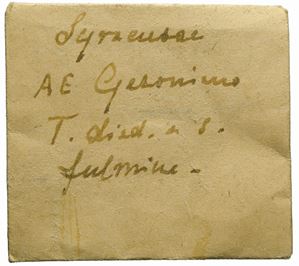 Syracusae
AE Geronimo
T. diad. a s.
fulmine -